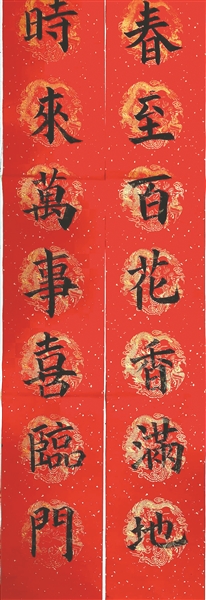 春至百花香滿地
時來萬事喜臨門